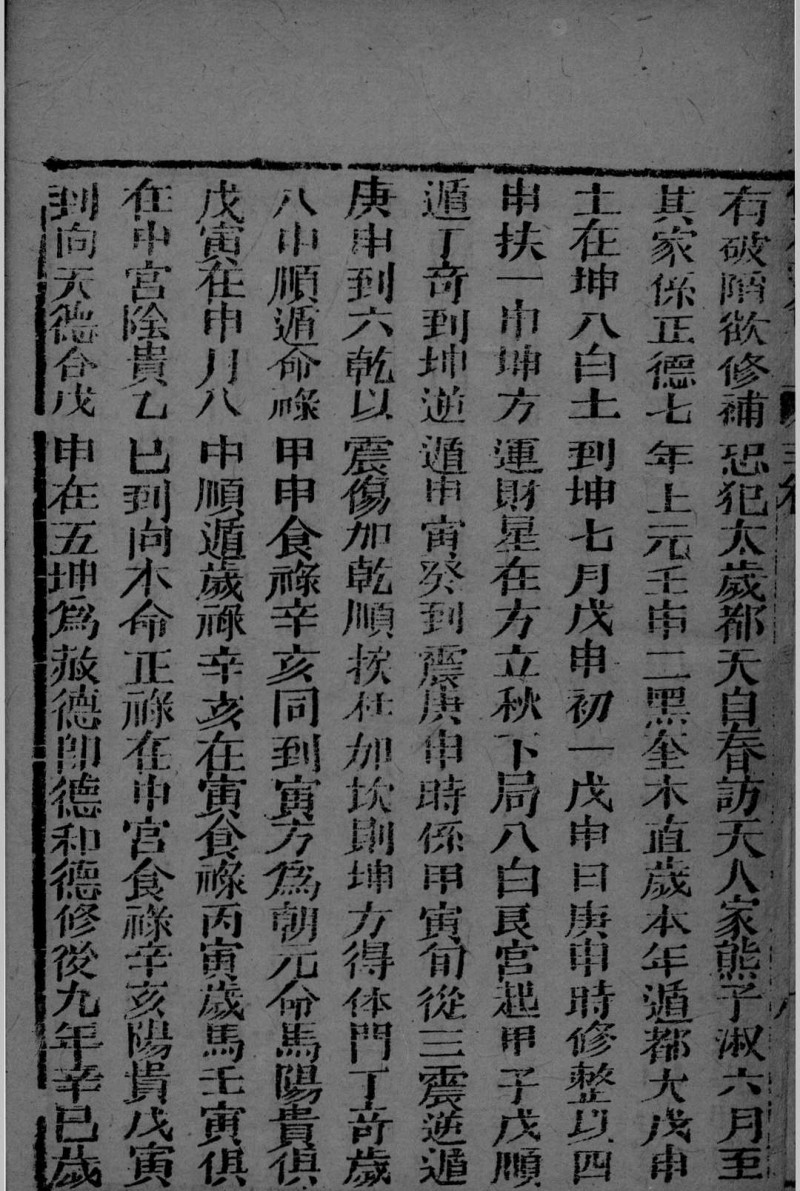 有破陷欲修補恐犯太歲都天自春訪天人家熊子淑六月至
其家係正德七年上元壬申二黑奎木直歲本年遁都天戊申
土在坤八白土到坤七月戊申初一戊申日庚申時修整以四
申扶一巾坤方運財星在方立秋下局八白艮宮起甲子戊順
遁丁奇到坤逆遁甲寅癸到震庚申時係甲寅旬從三震逆遁
庚申到六乾以震傷加乾順挨杜加坎則坤方得休門丁奇歲
八中順遁命祿甲申食祿辛亥同到寅方為朝元命馬陽貴俱
戊寅在申月八中順遁歲祿辛亥在寅食祿丙寅歲馬壬寅俱
在中宮陰貴乙巳到向木命正祿在中宮食祿辛亥陽貴戊寅
到向天德合戊申在五坤為救德即德和德修後九年辛巳歲